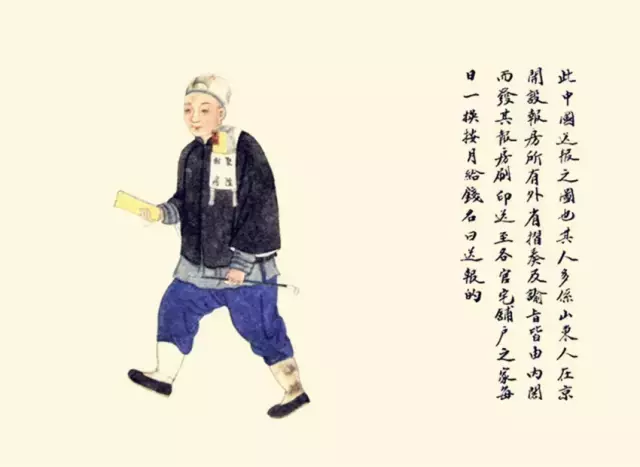 此中國送报之圖也其人多係山東人在京
開設報房所有外省摺奏及諭旨皆由内閣
而發其报房刷印送至各官宅舖户之家每
日一换按月给錢名曰送報的
報房